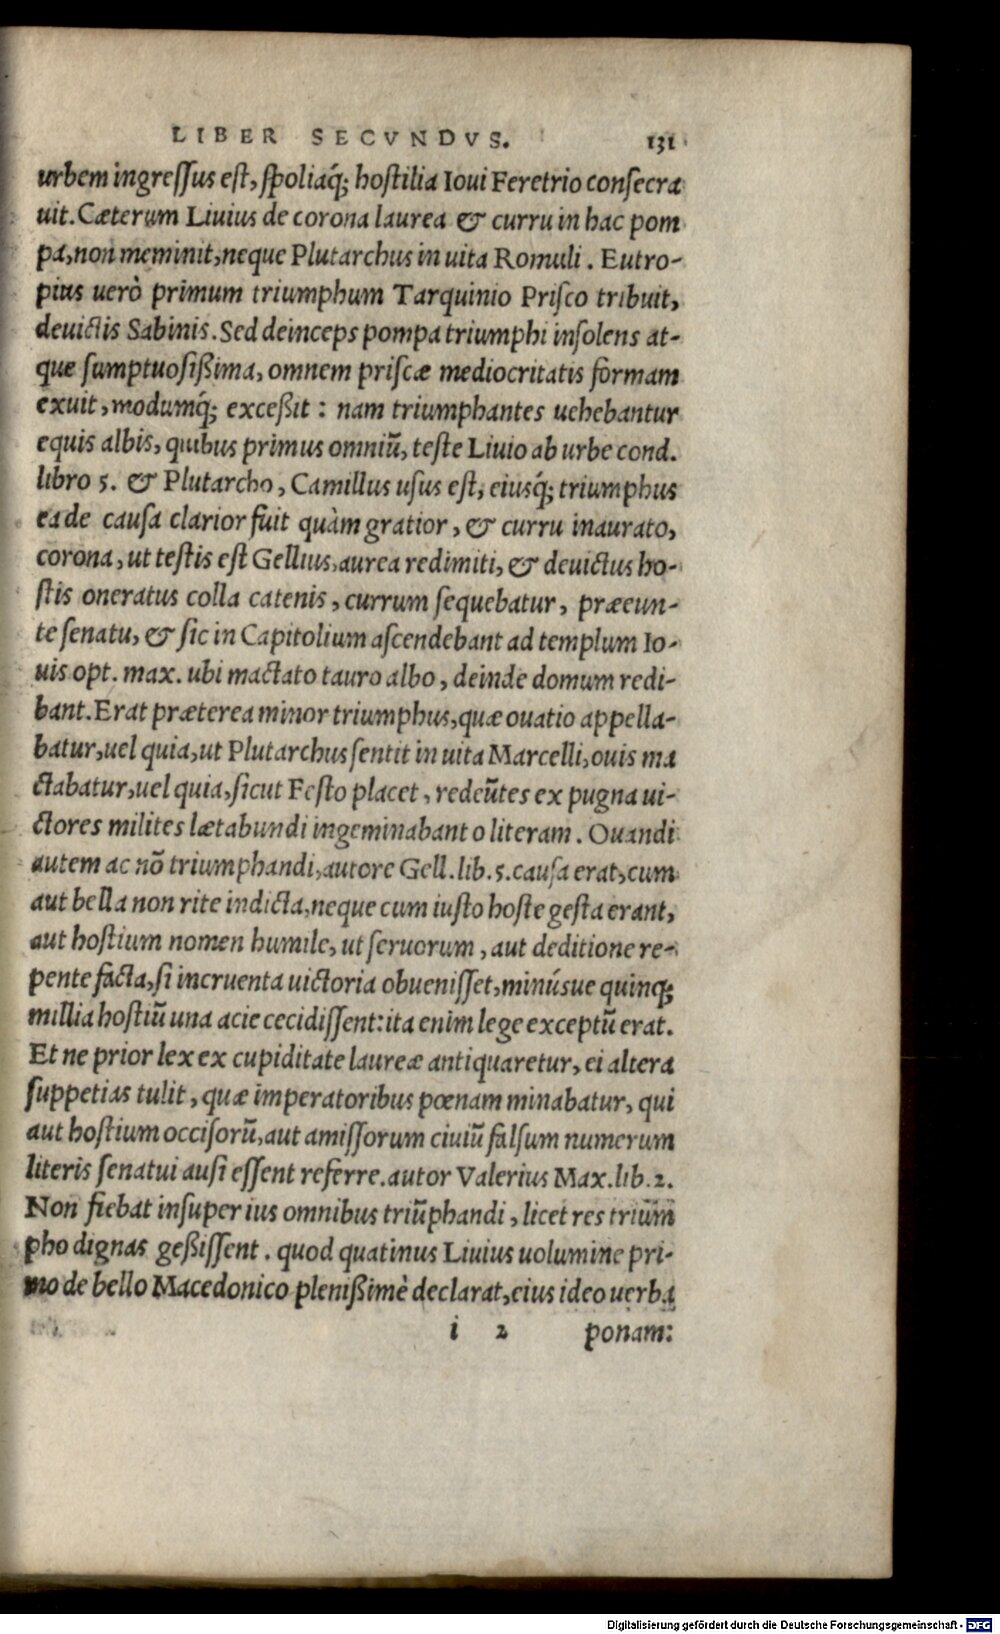 LIBER SECVNDVS. 131
urbem ingressus est, spoliaq́; hostilia Ioui Feretrio consecra
uit. Cæterum Liuius de corona laurea & curru in hac pom
pa, non meminit, neque Plutarchus in uita Romuli. Eutro-
pius uerò primum triumphum Tarquinio Prisco tribuit,
deuictis Sabinis. Sed deinceps pompa triumphi insolens at-
que sumptuosißima, omnem priscæ mediocritatis formam
exuit, modumq́; exceßit: nam triumphantes uehebantur
equis albis, quibus primus omniũ, teste Liuio ab urbe cond.
libro 5. & Plutarcho, Camillus usus est, eiusq́; triumphus
ea de causa clarior fuit quàm gratior, & curru inaurato,
corona, ut testis est Gellius, aurea redimiti, & deuictus ho-
stis oneratus colla catenis, currum sequebatur, præeun-
te senatu, & sic in Capitolium ascendebant ad templum Io-
uis opt. max. ubi mactato tauro albo, deinde domum redi-
bant. Erat præterea minor triumphus, quæ ouatio appella-
batur, uel quia, ut Plutarchus sentit in uita Marcelli, ouis ma
ctabatur, uel quia, sicut Festo placet, redeũtes ex pugna ui-
ctores milites lætabundi ingeminabant o literam. Ouandi
autem ac nõ triumphandi, autore Gell. lib. 5. causa erat, cum
aut bella non rite indicta, neque cum iusto hoste gesta erant,
aut hostium nomen humile, ut seruorum, aut deditione re-
pente facta, si incruenta uictoria obuenisset, minúsue quinq;
millia hostiũ una acie cecidissent: ita enim lege exceptũ erat.
Et ne prior lex ex cupiditate laureæ antiquaretur, ei altera
suppetias tulit, quæ imperatoribus pœnam minabatur, qui
aut hostium occisorũ, aut amissorum ciuiũ falsum numerum
literis senatui ausi essent referre. autor Valerius Max. lib. 2.
Non fiebat insuper ius omnibus triũphandi, licet res trium
pho dignas geßissent. quod quatinus Liuius uolumine pri-
mo de bello Macedonico plenißimè declarat, eius ideo uerba
i 2 ponam:
Digitalisierung gefördert durch die Deutsche Forschungsgemeinschaft - DFG